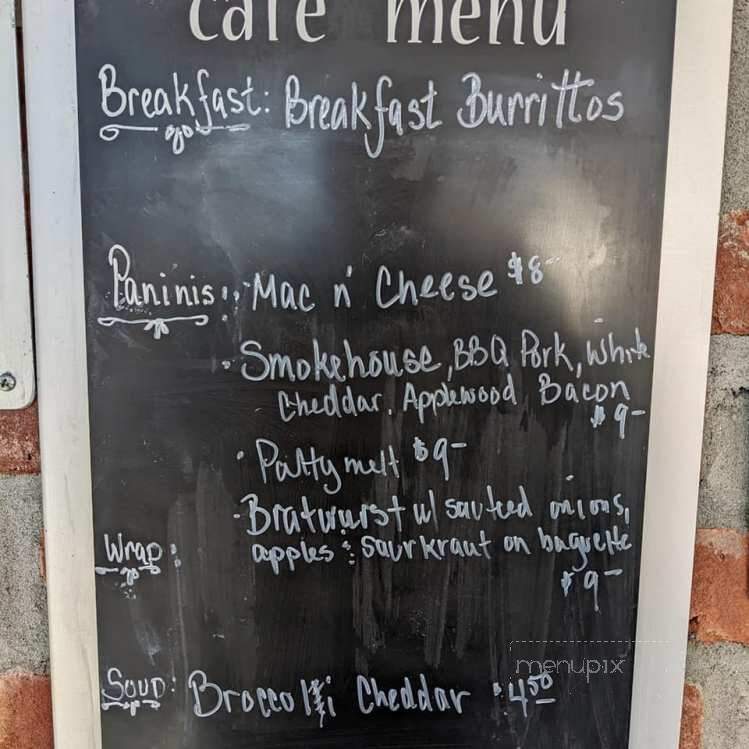 cafe menu
Breakfast: Breakfast Burrittos
Paninis: · Mac n' Cheese $8-
· Smokehouse, BBQ Pork, White
Cheddar, Applewood Bacon
$9-
· Patty melt $9-
· Bratwurst w/ sauteed onions,
Wrap: apples & saurkraut on baguette
$9-
Soup: Broccolli Cheddar 4.50
menupix